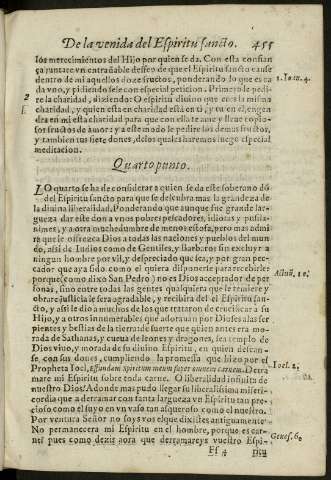 De la venida del Espiritu sancto. 455
los merecimientos del Hijo por quien se da. Con esta confian
ça juntare vn entrañable desseo de que el Espiritu sancto cause
dentro de mi aquellos doze fructos, ponderando lo que es ca
da vno, y pidiendo sele con especial peticion. Primero le pedi-
re la charidad, diziendo: O espiritu diuino que eres la misma
charidad, y quien esta en charidad esta en ti, y tu en el, engen
dra en mi esta charidad para que con ella te ame y lleue copio-
sos fructos de amor: y a este modo le pedire los demas fructos,
y tambien sus siete dones, de los quales haremos luego especial
meditacion.
1. Ioan. 4.
Quarto punto.
LO quarto se ha de considerar a quien se da este soberano dõ
del Espiritu sancto para que se descubra mas la grandeza de
la diuina liberalidad. Ponderando que aunque fue grande lar-
gueza dar este don a vnos pobres pescadores, idiotas y pusila-
nimes, y a otra muchedumbre de menor estofa, pero mas admi
ra que le ofrezca Dios a todas las naciones y pueblos del mun
do, assi de Iudios como de Gentiles, y barbaros sin excluyr a
ningun hombre por vil, y despreciado que sea, y por gran pec-
cador que aya sido como el quiera disponerse para recebirle:
porque (como dixo San Pedro) no es Dios acceptador de per
sonas, sino entre todas las gentes qualquiera que le temiere y
obrare justicia le sera agradable, y recibira del el Espiritu san-
cto, y assi le dio a muchos de los que trataron de crucificar a su
Hijo, y a otros innumerables que adorauan por Dioses a las ser
pientes y bestias de la tierra de suerte que quien antes era mo-
rada de Sathanas, y cueua de leones y dragones, sea templo de
Dios viuo, y morada de su diuino Espiritu, en quien descan-
se, con sus dones, cumpliendo la promessa que hizo por el
Propheta Ioel, effundam spiritum meum super omnem carnem. Derra
mare mi Espiritu sobre toda carne. O liberalidad infinita de
nuestro Dios! Adonde mas pudo llegar su liberalissima miseri-
cordia que a derramar con tanta largueza vn Espiritu tan pre-
cioso como el suyo en vn vaso tan asqueroso como el nuestro.
Por ventura Señor no soys vos el que dixistes antiguamente:
No permanecera mi Espiritu en el hombre, porque es car-
ne? pues como dezis aora que derramareys vuestro Espi-
Actuũ. 10.
Ioel. 2.
Genes. 6.
Ff 4